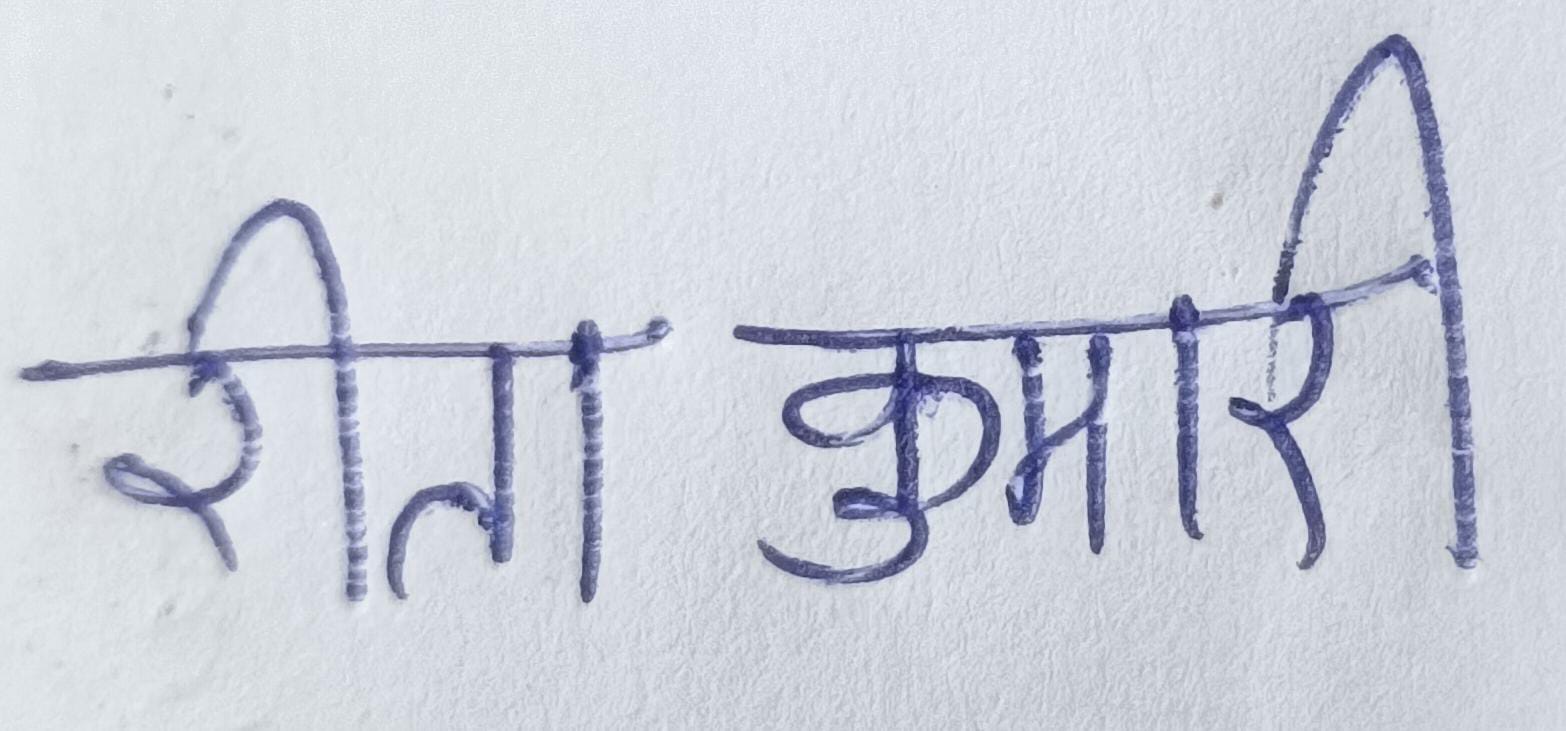 रीता कुमारी